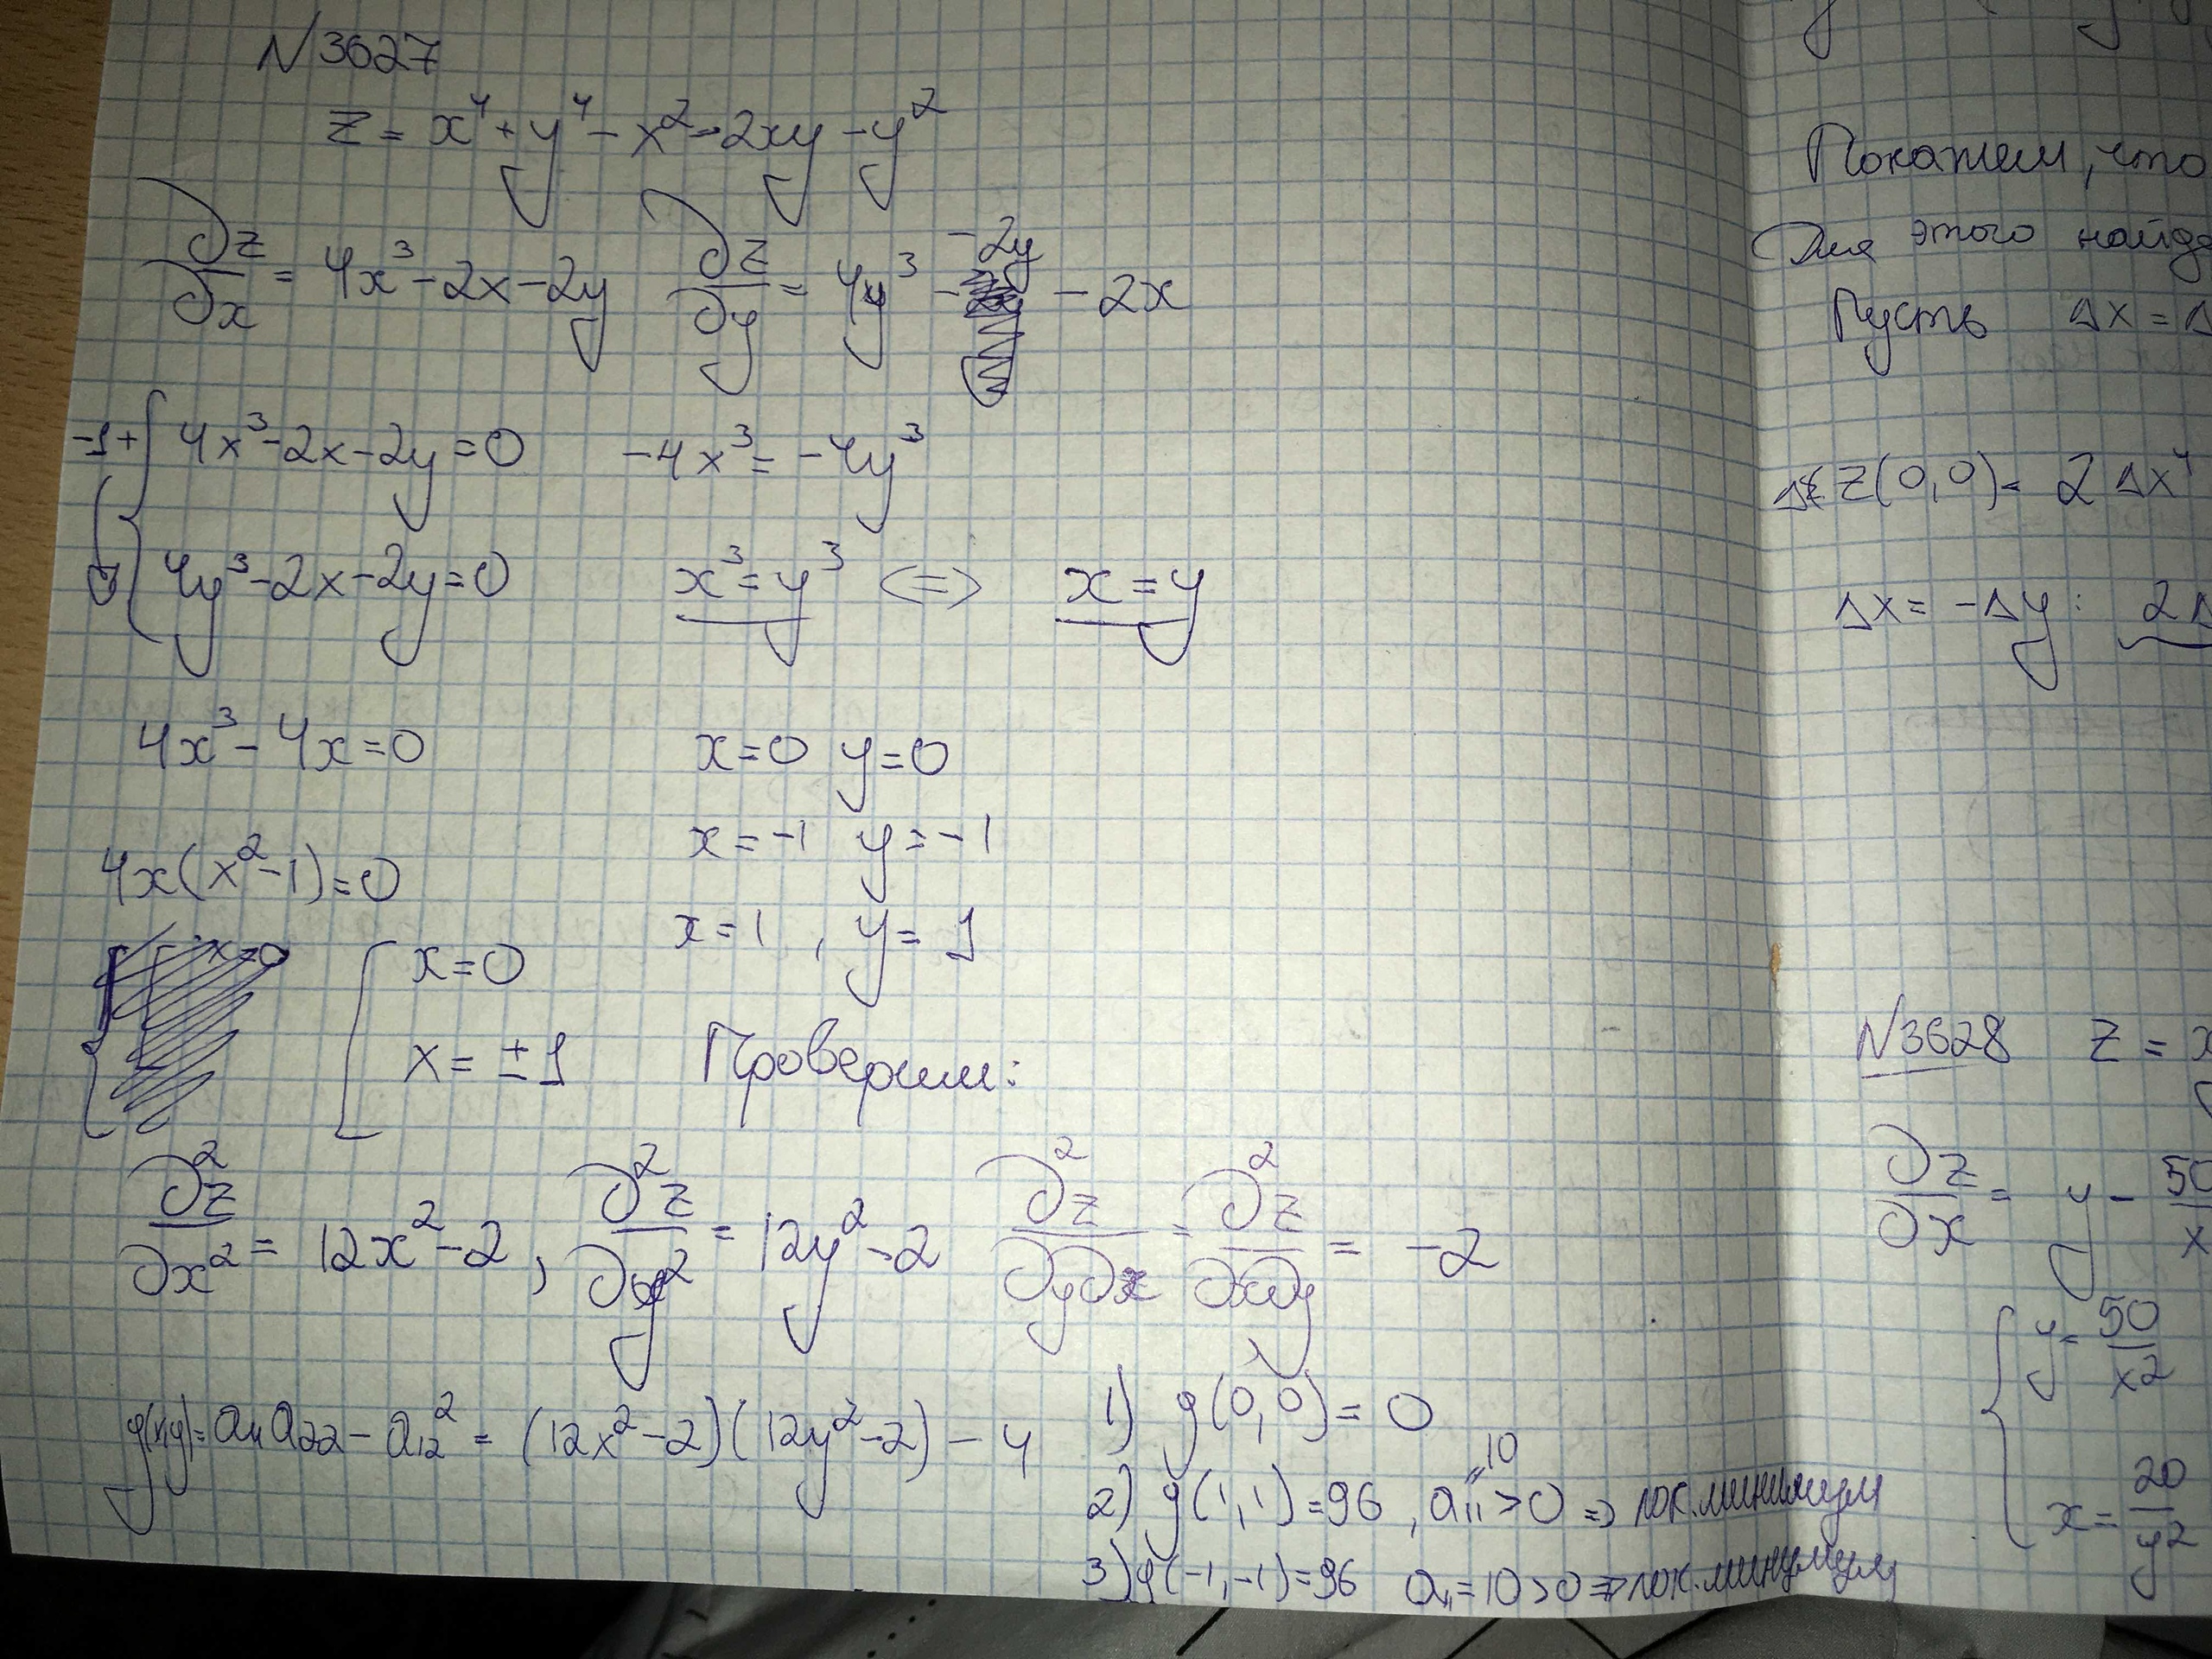 N3627
z = x⁴ + y⁴ - x² - 2xy - y²
∂z/∂x = 4x³ - 2x - 2y   ∂z/∂y = 4y³ - 2y - 2x
-1 + { 4x³ - 2x - 2y = 0   -4x³ = -4y³
4y³ - 2x - 2y = 0   x³ = y³ <=> x = y
4x³ - 4x = 0   x = 0 y = 0
x = -1 y = -1
4x(x² - 1) = 0
x = 1, y = 1
[ x = 0
x = ±1   Проверим:
∂²z/∂x² = 12x² - 2, ∂²z/∂y² = 12y² - 2   ∂²z/∂y∂x = ∂²z/∂x∂y = -2
φ(x,y) = a₁₁a₂₂ - a₁₂² = (12x² - 2)(12y² - 2) - 4
1) φ(0,0) = 0
2) φ(1,1) = 96, a₁₁ = 10 > 0 => лок. минимум
3) φ(-1,-1) = 96 a₁₁ = 10 > 0 => лок. минимум
Покажем, что
Для этого найдё
Пусть Δx = Δ
Δz(0,0) = 2Δx⁴
Δx = -Δy: 2Δ
N3628 z = x
∂z/∂x = y - 50/x
{ y = 50/x2
x = 20/y2